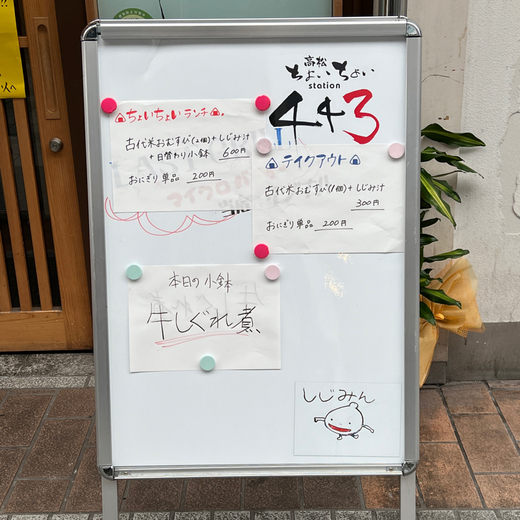 高松
ちょいちょい
station
443
ちょいちょいランチ
古代米おむすび(2個)+しじみ汁
+日替わり小鉢 600円
おにぎり単品 200円
テイクアウト
古代米おむすび(1個)+しじみ汁
300円
おにぎり単品 200円
本日の小鉢
牛しぐれ煮
しじみん